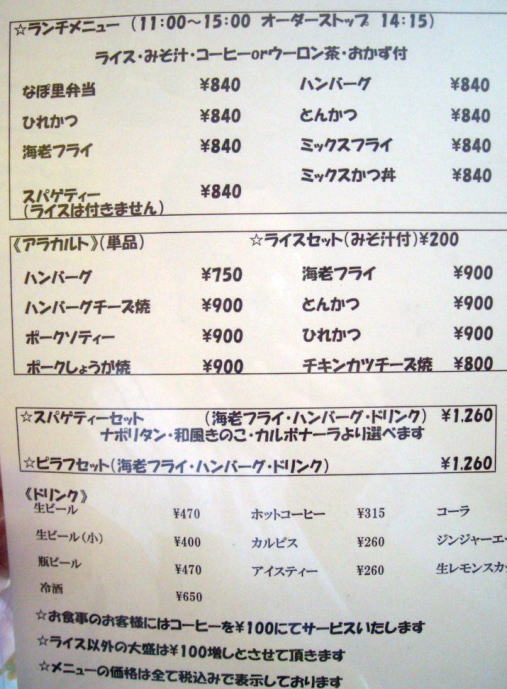 ☆ランチメニュー (11:00～15:00 オーダーストップ 14:15)
ライス・みそ汁・コーヒーorウーロン茶・おかず付
なぽ里弁当 ¥840 ハンバーグ ¥840
ひれかつ ¥840 とんかつ ¥840
海老フライ ¥840 ミックスフライ ¥840
ミックスかつ丼 ¥840
スパゲティー ¥840
(ライスは付きません)
《アラカルト》(単品) ☆ライスセット(みそ汁付)¥200
ハンバーグ ¥750 海老フライ ¥900
ハンバーグチーズ焼 ¥900 とんかつ ¥900
ポークソティー ¥900 ひれかつ ¥900
ポークしょうが焼 ¥900 チキンカツチーズ焼 ¥800
☆スパゲティーセット (海老フライ・ハンバーグ・ドリンク) ¥1.260
ナポリタン・和風きのこ・カルボナーラより選べます
☆ピラフセット(海老フライ・ハンバーグ・ドリンク) ¥1.260
《ドリンク》
生ビール ¥470 ホットコーヒー ¥315 コーラ
生ビール(小) ¥400 カルピス ¥260 ジンジャーエー
瓶ビール ¥470 アイスティー ¥260 生レモンスカッ
冷酒 ¥650
☆お食事のお客様にはコーヒーを¥100にてサービスいたします
☆ライス以外の大盛は¥100増しとさせて頂きます
☆メニューの価格は全て税込みで表示しております